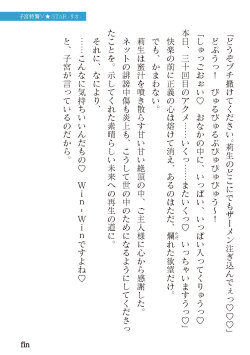 「どうぞブチ撒けてください♡莉生のどこにでもザーメン注ぎ込んでぇっ♡♡♡」
どぷうっ！　びゅるびゅるぶびゅびゅびゅう〜！
「しゅっごおおぃ♡　おなかの中に、いっぱい、いっぱい入ってくりゅうっ♡
本日、三十回目のアクメ……いくっ……またいくっ♡　いっちゃいますうっ♡」
快楽の前に正義の心は熔けて消え、あるのはただ、爛れた欲望だけ。
でも、かまわない。
莉生は蜜汁を噴き散らす甘い甘い絶頂の中、ご主人様に心から感謝した。
ネットの誹謗中傷も炎上も、こうして世の中のためになるようにしてくださっ
たことを、示してくれた素晴らしい未来への再生の道に。
それに、なにより。
……こんなに気持ちいいんだもの♡　Ｗｉｎ－Ｗｉｎですよね♡
と、子宮が言っているのだから。
fin